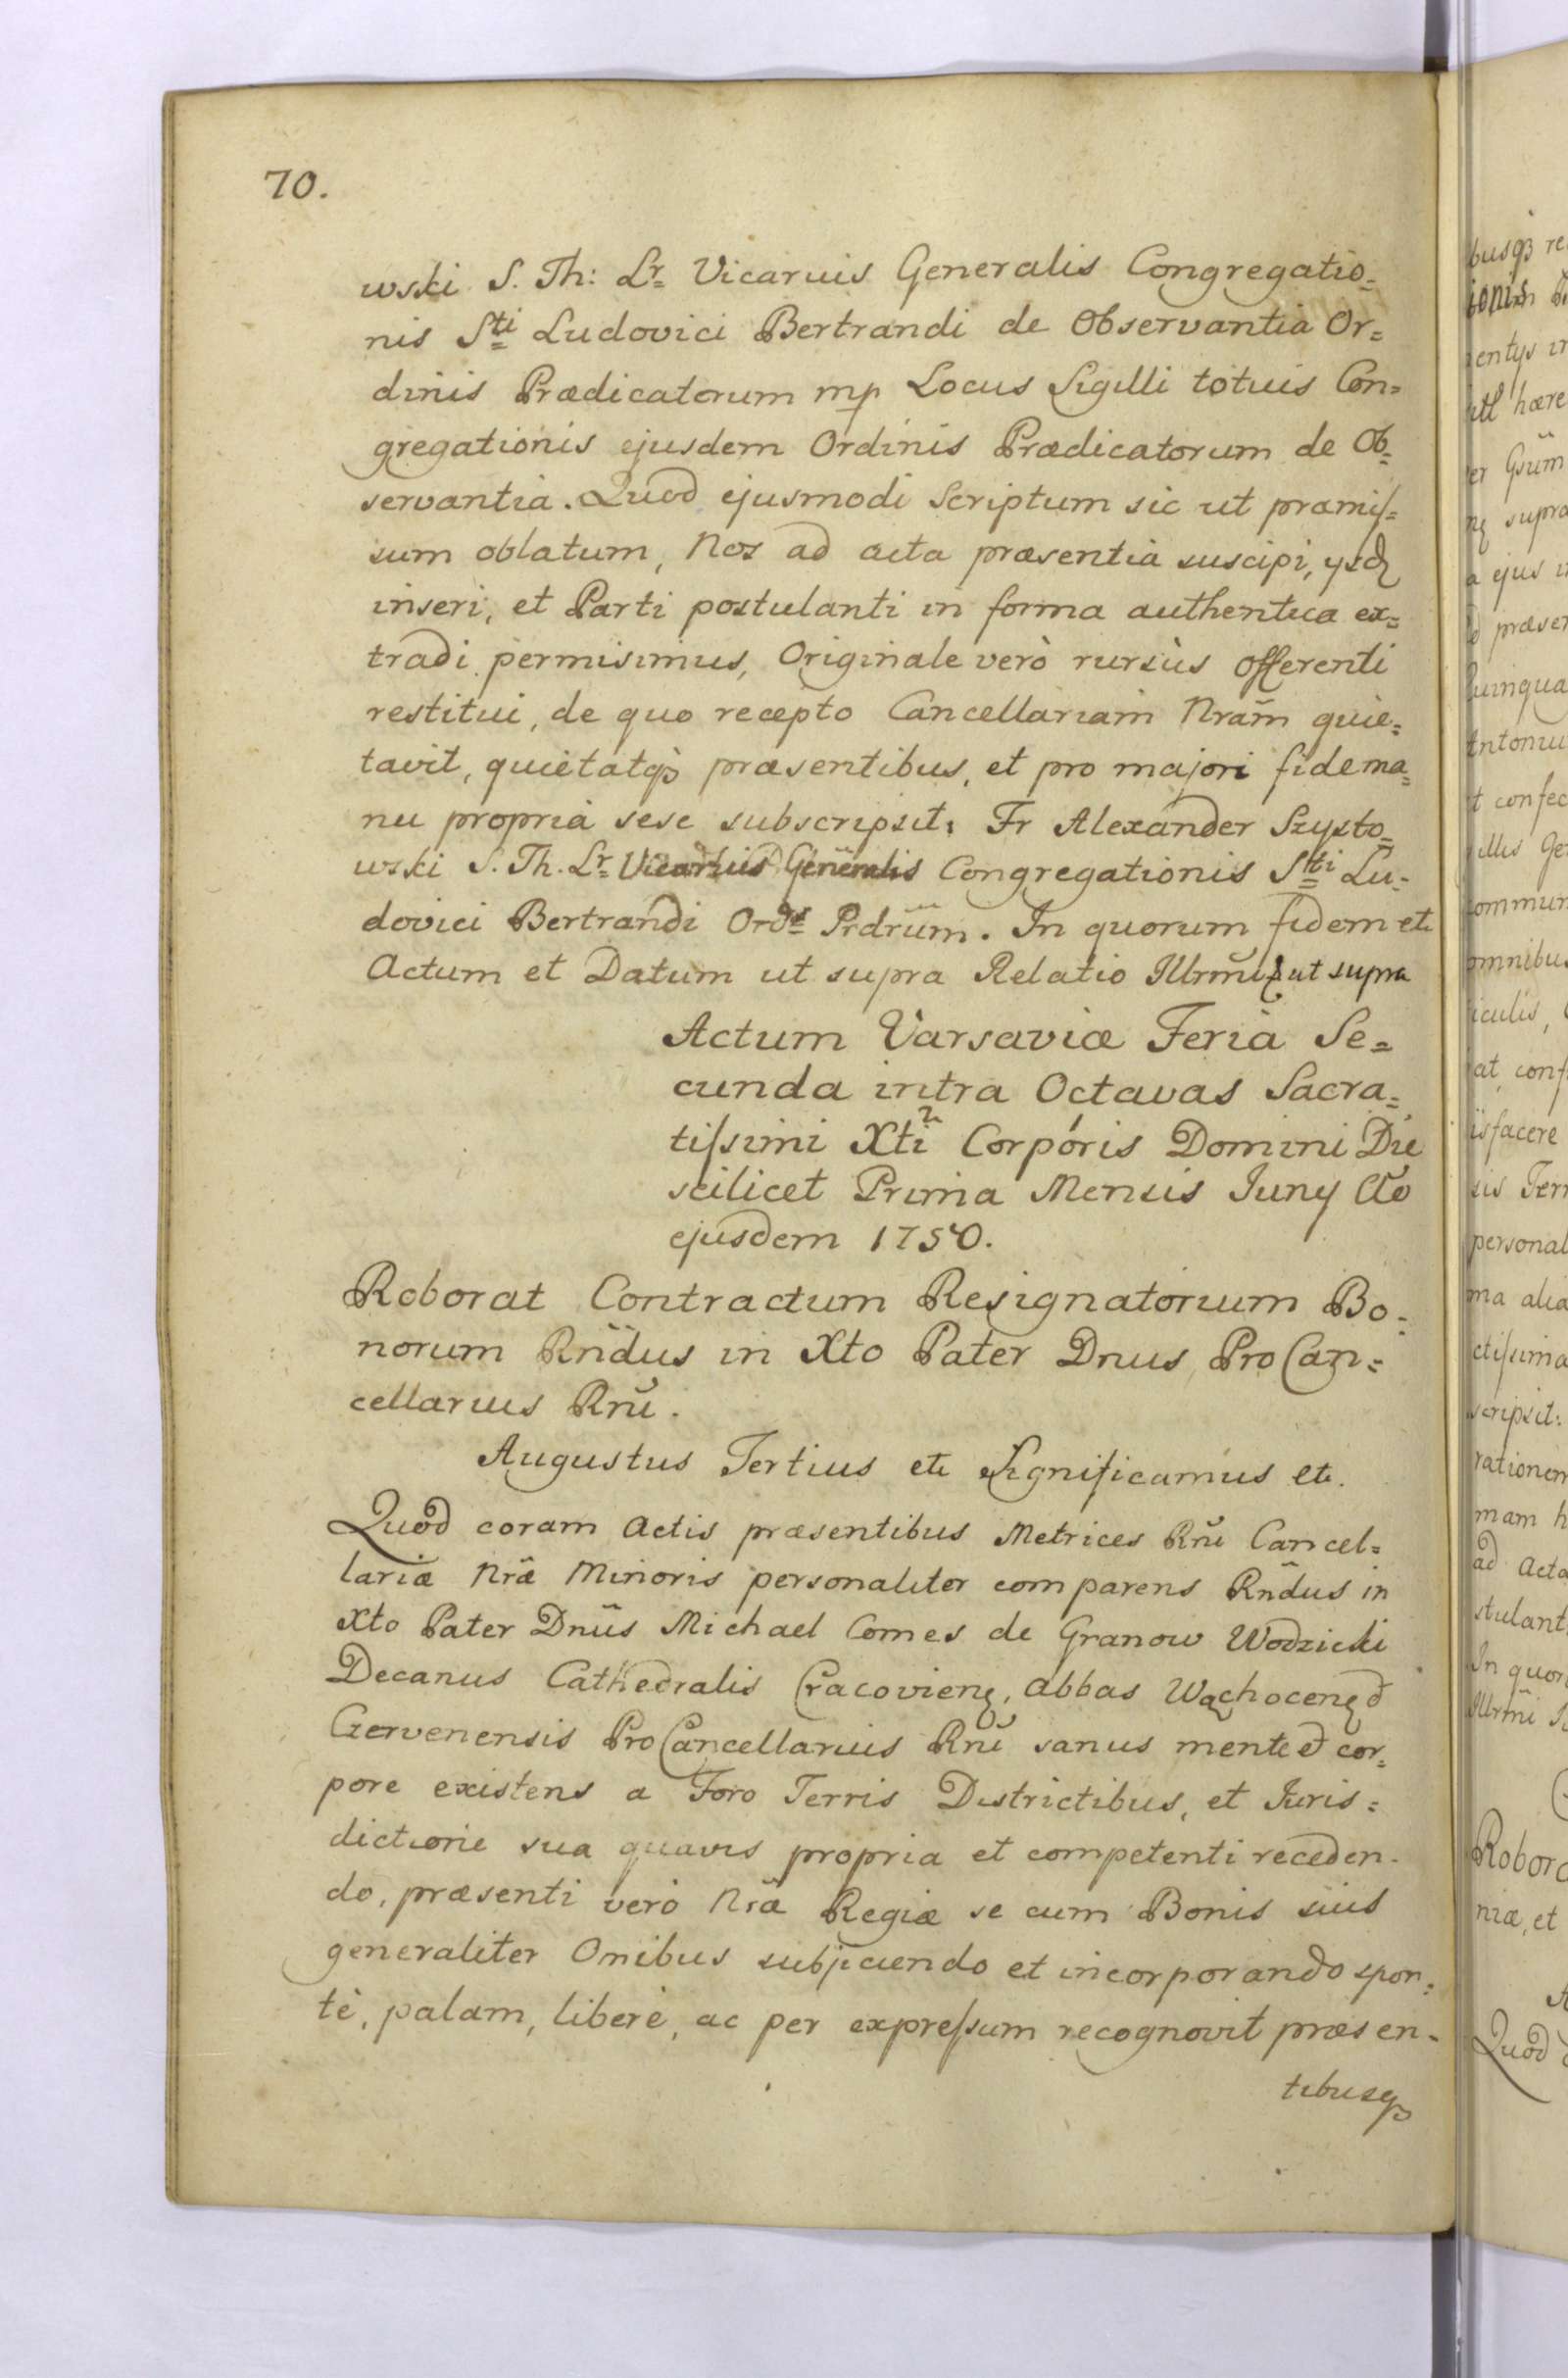 70.
wski S. Th: Lr= Vicarius Generalis Congregatio=
nis Sti Ludovici Bertrandi de Observantia Or=
dinis Prædicatorum mp Locus Sigilli totius Con=
gregationis ejusdem Ordinis Prædicatorum de Ob=
servantia. Quod ejusmodi Scriptum sic ut præmis=
sum oblatum, Nos ad acta præsentia suscipi, ysdq
inseri, et Parti postulanti in forma authentica ex=
tradi permisimus, Originale verò rursùs offerenti
restitui, de quo recepto Cancellariam Nram̃ quie=
tavit, quietatqꝫ præsentibus, et pro majori fide ma=
nu propria sese subscripsit: Fr Alexander Szysto=
wski S. Th. Lr= Vicarius Generalis Congregationis Sti Lu=
dovici Bertrandi Ords Prdrum̃. In quorum fidem etc
Actum et Datum ut supra Relatio Illrmi ut supra
Actum Varsaviæ Feria Se=
cunda intra Octavas Sacra=
tissimi Xti Corporis Domini Die
scilicet Prima Mensis Juny Ao
ejusdem 1750.
Roborat Contractum Resignatorium Bo=
norum Rñdus in Xto Pater Dnus ProCan=
cellarius Rnĩ.
Augustus Tertius etc Significamus etc.
Quod coram Actis præsentibus Metrices Rnĩ Cancel=
lariæ Nrã Minoris personaliter comparens Rñdus in
Xto Pater Dnũs Michael Comes de Granow Wodzicki
Decanus Cathedralis Cracovienq, Abbas Wąchocenq et
Czervenensis ProCancellarius Rnĩ sanus mente et cor=
pore existens a Foro Terris Districtibus, et Juris=
dictione sua quavis propria et competenti receden=
do, præsenti verò Nrã Regiæ se cum Bonis suis
generaliter Omibus subjiciendo et incorporando spon=
tè, palam, liberè, ac per expressum recognovit præsen=
tibusqꝫ